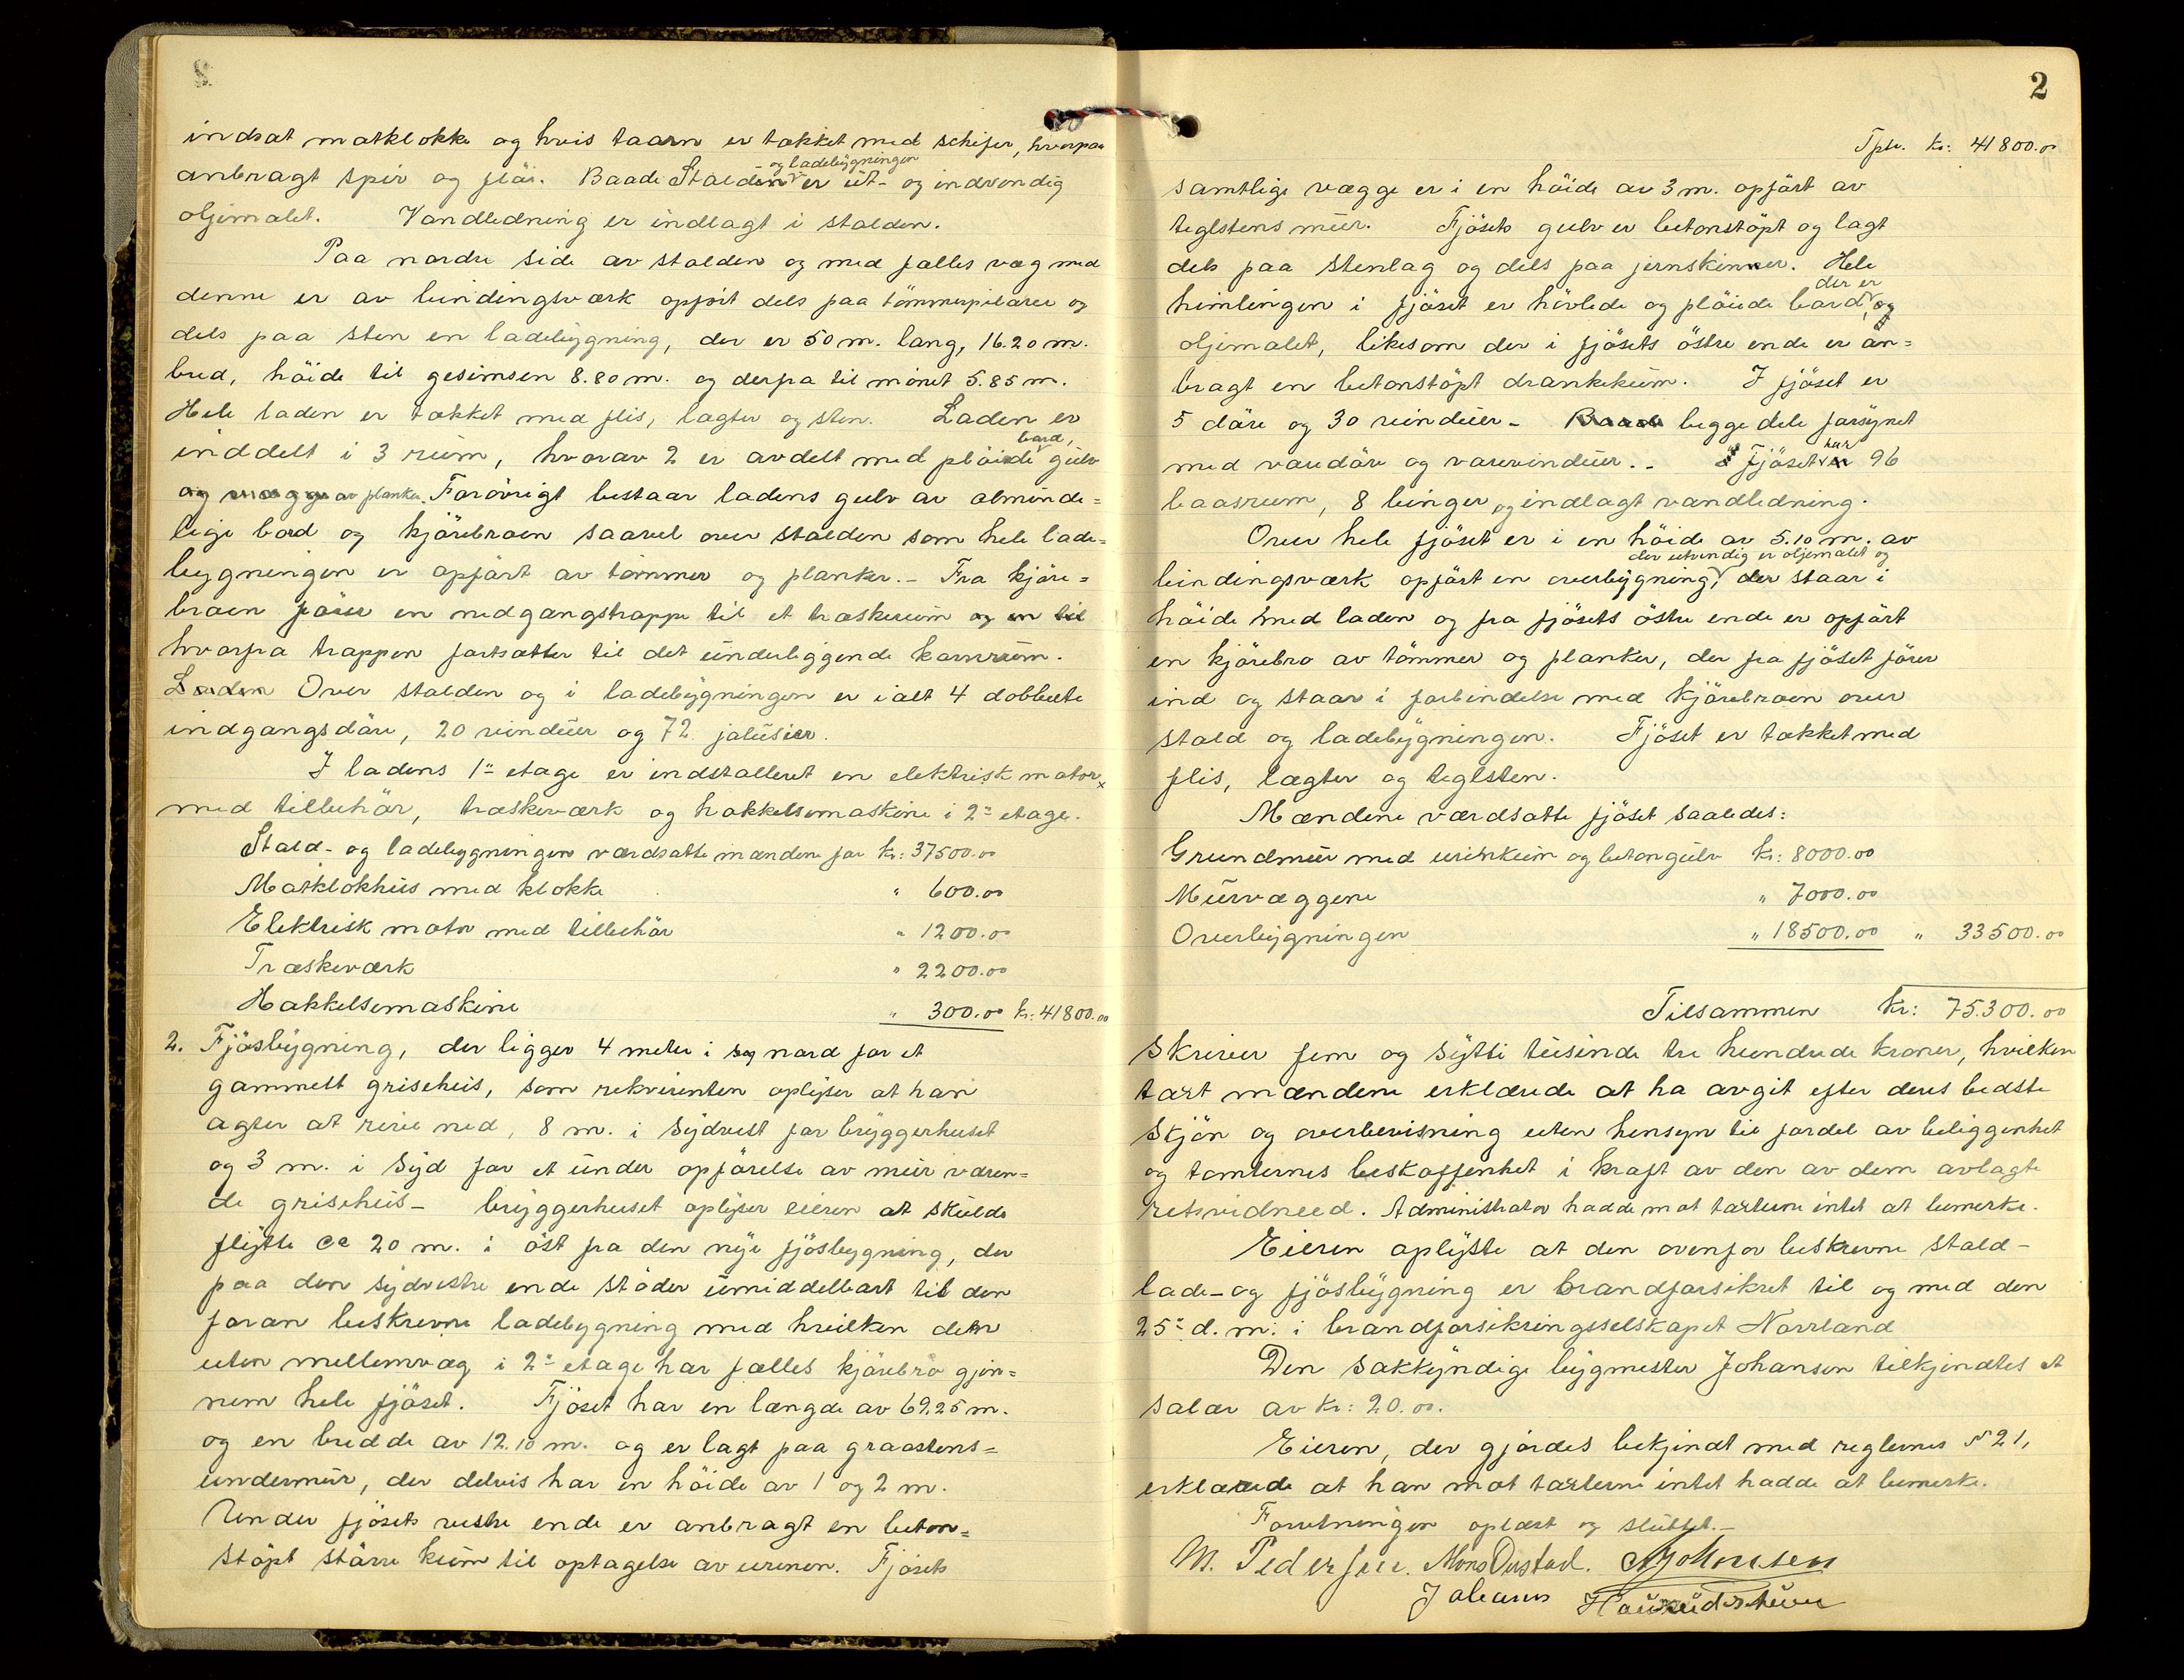 indsat matklokke og hvis taarn er tækket med schifer, hvorpaa
anbragt spir og fløi. Baade Stalden og ladebygningen er ut- og indvendig
oljemalet. Vandledning er indlagt i stalden.
Paa nordre side av stalden og med fælles væg med
denne er av bindingsværk opført dels paa tømmerpilarer og
dels paa sten en ladebygning, der er 50 m. lang, 16.20 m.
bred, høide til gesimsen 8.80 m. og derfra til mønet 5.85 m.
Hele laden er tækket med flis, lægter og sten. Laden er
inddelt i 3 rum, hvorav 2 er avdelt med pløiede bord, gulv
og vægge av planker. Forøvrigt bestaar ladens gulv av alminde=
lige bord og kjørebroen saavel over stalden som hele lade=
bygningen er opført av tømmer og planker. - Fra kjøre=
broen fører en nedgangstrappe til et træskerum og en til
hvorfra trappen fortsætter til det underliggende kornrum.
Laden Over stalden og i ladebygningen er ialt 4 dobbelte
indgangsdøre, 20 vinduer og 72 jalusier.
I ladens 1" etage er indstalleret en elektrisk motor x
med tilbehør, træskeværk og hakkelsemaskine i 2" etage.
Stald- og ladebygningen værdsatte mændene for kr: 37500.00
Matklokhus med klokke " 600.00
Elektrisk motor med tilbehør " 1200.00
Træskeværk " 2200.00
Hakkelsemaskine " 300.00 kr: 41800.00
2. Fjøsbygning, der ligger 4 meter i syd nord for et
gammelt grisehus, som rekvirenten oplyser at han
agter at rive ned, 8 m. i Sydvest for bryggerhuset
og 3 m. i Syd for et under opførelse av mur væren=
de grisehus - bryggerhuset oplyser eieren at skulde
flytte ca 20 m. i øst fra den nye fjøsbygning, der
paa den sydvestre ende støder umiddelbart til den
foran beskrevne ladebygning med hvilken den
uten mellemvæg i 2" etage har fælles kjørebro gjen=
nem hele fjøset. Fjøset har en længde av 69.25 m.
og en bredde av 12.10 m. og er lagt paa graastens=
undermur, der delvis har en høide av 1 og 2 m.
Under fjøsets vestre ende er anbragt en beton=
støpt større kum til optagelse av urinen. Fjøsets
2
Tpt. kr. 41800.00
samtlige vægge er i en høide av 3 m. opført av
teglstens mur. Fjøsets gulv er betonstøpt og lagt
dels paa stenlag og dels paa jernskinner. Hele
himlingen i fjøset er høvlede og pløiede bord, der er og
oljemalet, likesom der i fjøsets østre ende er an=
bragt en betonstøpt drankekum. I fjøset er
5 døre og 30 vinduer - Baade begge dele forsynet
med varedøre og varevinduer. - I Fjøset har er 96
baasrum, 8 binger og indlagt vandledning.
Over hele fjøset er i en høide av 5.10 m. av
bindingsværk opført en overbygning, der utvendig er oljemalet og der staar i
høide med laden og fra fjøsets østre ende er opført
en kjørebro av tømmer og planker, der fra fjøset fører
ind og staar i forbindelse med kjørebroen over
stald og ladebygningen. Fjøset er tækket med
flis, lægter og teglsten.
Mændene værdsatte fjøset saaledes:
Grundmur med urinkum og betongulv kr: 8000.00
Murvæggene " 7000.00
Overbygningen " 18500.00 " 33500.00
Tilsammen kr: 75.300.00
skriver fem og sytti tusinde tre hundrede kroner, hvilken
takst mændene erklærede at ha avgit efter deres bedste
skjøn og overbevisning uten hensyn til fordel av beliggenhet
og tomternes beskaffenhet i kraft av den av dem avlagte
retsvidneed. Administrator hadde mot taksterne intet at bemerke.
Eieren oplyste at den ovenfor beskrevne stald-
lade- og fjøsbygning er brandforsikret til og med den
25" d. m. i brandforsikringsselskapet Norrland
Den sakkyndige bygmester Johansen tilkjendtes et
salær av kr: 20.00.
Eieren, der gjordes bekjendt med reglernes § 21,
erklærede at han mot taksterne intet hadde at bemerke.
Forretningen oplæst og sluttet. -
M. Pedersen. Mons Onstad. A Johansen
Johannes Haugudstuen